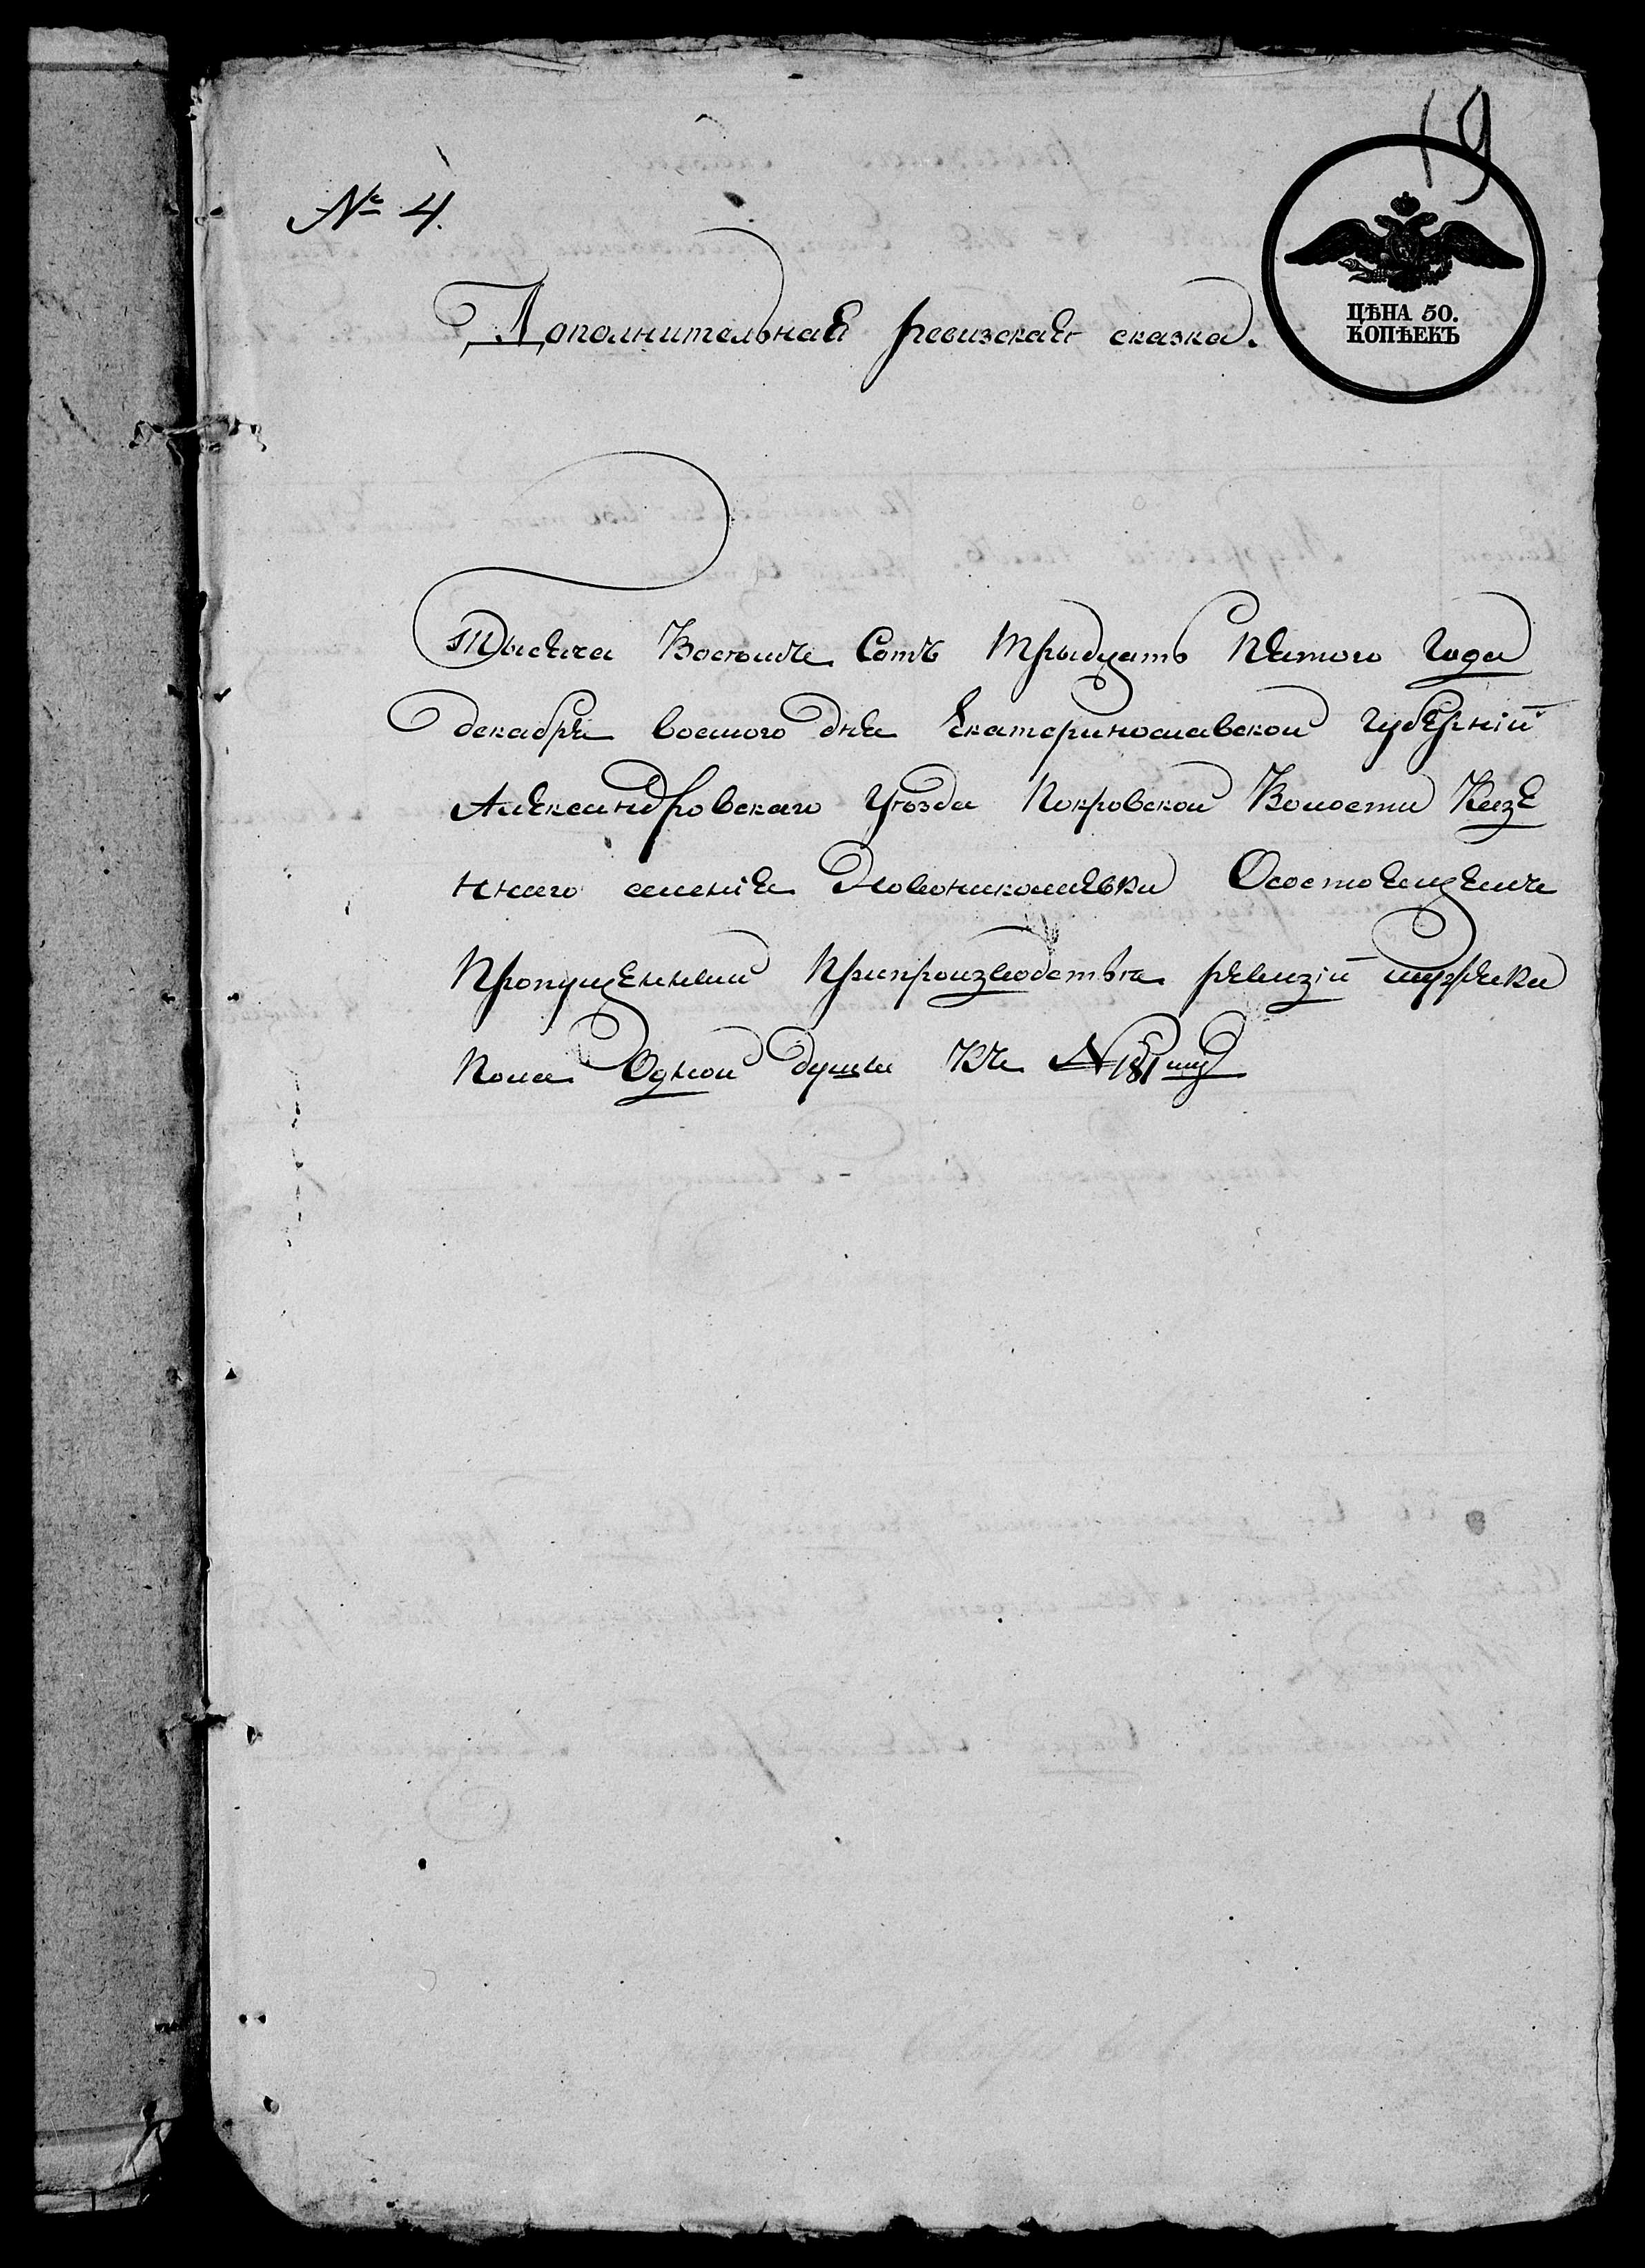 19
№ 4.
ЦѢНА 50.
КОПѢЕКЪ
Дополнительная ревизская сказка.
Тысяча Восемъ Сотъ Трыдцать Пятого Года
декабря восмого дня Екатеринославской Губерніи
Александровскаго Уѣзда Покровской Волости Казе
ннаго селенія Новониколаевки Осостоящемъ
Пропущенный Припроизводствѣ ревизіи мужска
Пола Одной души Къ №